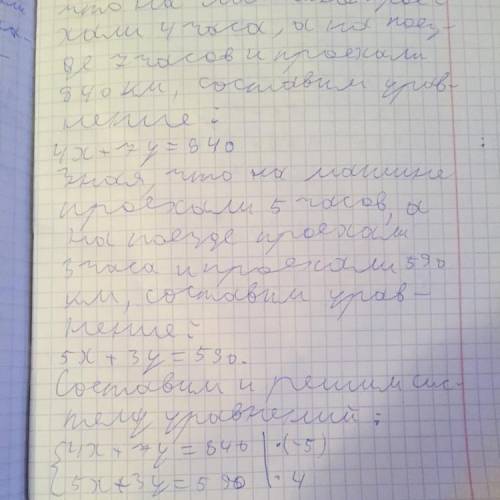 хали 4 часа, а на поез-
де 7 часов и проехали
940 км, составим урав-
нение:
4x + 7y = 940
Зная, что на машине
проехали 5 часов, а
на поезде проехали
3 часа и проехали 590
км, составим урав-
нение:
5x + 3y = 590.
Составим и решим сис-
тему уравнений:
{4x + 7y = 840 | ·(-5)
{5x + 3y = 590 | ·4